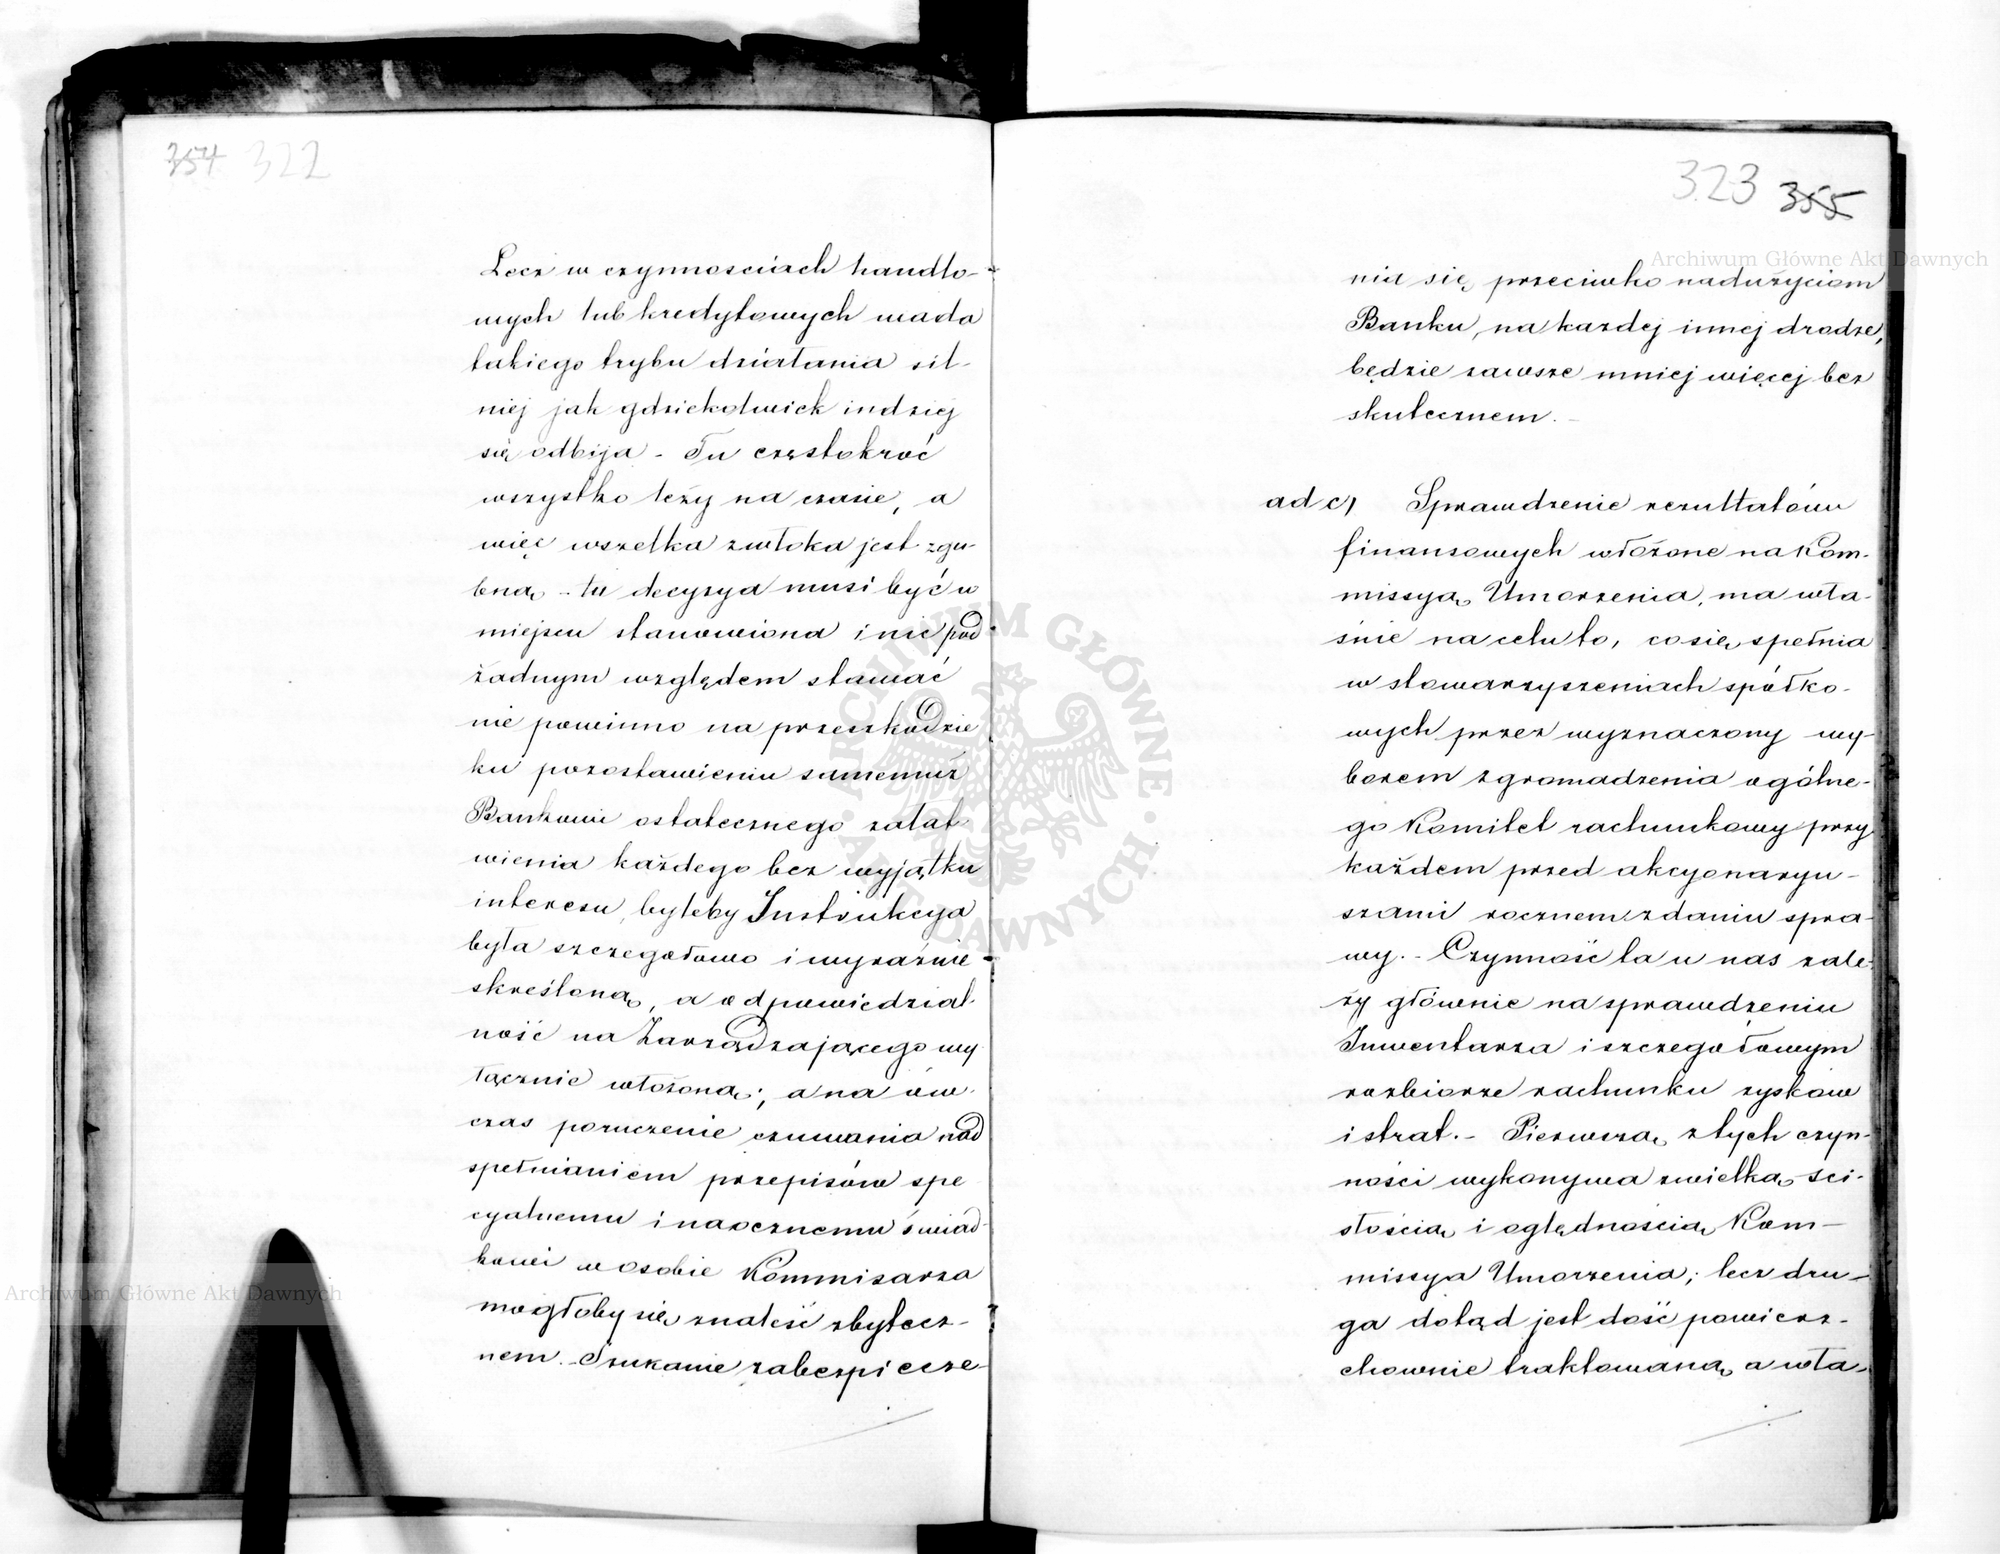 354 322
Lecz w czynnosciach handlo-
wych lub kredytowych wada
takiego trybu działania sil-
niej jak gdziekolwiek indziej
się odbija - Tu częstokroć
wszystko leży na czasie, a
więc wszelka zwłoka jest zgu-
bną - tu decyzya musi być w
miejscu stanowiona i nic pod
żadnym względem stawać
nie powinno na przeszkodzie
ku pozostawieniu samemuż
Bankowi ostatecznego załat-
wienia każdego bez wyjątku
interesu, byleby Instrukcya
była szczegółowo i wyraźnie
skreśloną, a odpowiedzial-
ność na Zarządzającego wy-
łącznie włożoną; a na ów-
czas poruczenie czuwania nad
spełnianiem przepisów spe
cyalnemu i naocznemu świad-
kowi w osobie Kommisarza
mogłoby się znaleść zbytecz-
nem. - Szukanie zabezpiecze-
323 355
nia się przeciwko nadużyciom
Banku, na każdej innej drodze,
będzie zawsze mniej więcej bez
skutecznem. -
ad c) Sprawdzenie rezultatów
finansowych włożone na Kom-
missyą Umorzenia, ma wła-
śnie na celu to, co się spełnia
w stowarzyszeniach spółko-
wych przez wyznaczony wy-
borem zgromadzenia ogólne-
go Komitet rachunkowy przy
każdem przed akcyonaryu-
szami rocznem zdaniu spra-
wy. - Czynność ta u nas zale-
ży głównie na sprawdzeniu
Inwentarza i szczegółowym
rozbiorze rachunku zysków
i strat. - Pierwszą z tych czyn-
ności wykonywa z wielką sci-
słością i oględnością Kom-
missya Umorzenia; lecz dru-
ga dotąd jest dość powierz-
chownie traktowaną, a wła-
Archiwum Główne Akt Dawnych
Archiwum Główne Akt Dawnych
ARCHIWUM GŁÓWNE AKT DAWNYCH